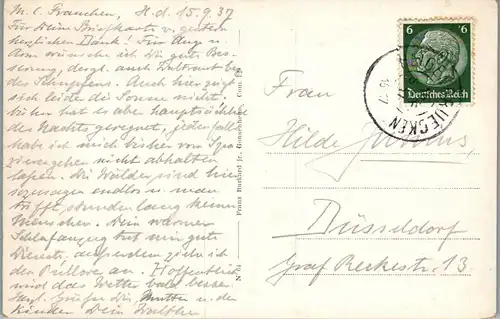 M. l. Frauchen, H. d. 15.9.37
Für Deine Briefkarte v. gestern
herzlichen Dank! Für Aug u.
wünsche ich Dir gute Bes-
serung, desgl. auch
des Schnupfens. Auch hier zeigt
sich leider die Sonne nicht.
bisher hat es aber hauptsächlich
des Nachts geregnet, jedenfalls
habe ich mich bisher vom Spa-
zierengehen nicht abhalten
lassen. Die Wälder sind hier
sozusagen endlos u. man
trifft stundenlang keinen
Menschen. Dein warmer
Schlafanzug tut mir gute
Dienste, außerdem ziehe ich
den Pullover an. Hoffentlich
wird das Wetter bald besser.
Herzl. Grüße Dir, Mutter u. den
Kindern Dein Walther
Franz Burkard jr.
6 6
Deutsches Reich
Frau
Hilde
Düsseldorf
Graf Reckestr. 13.